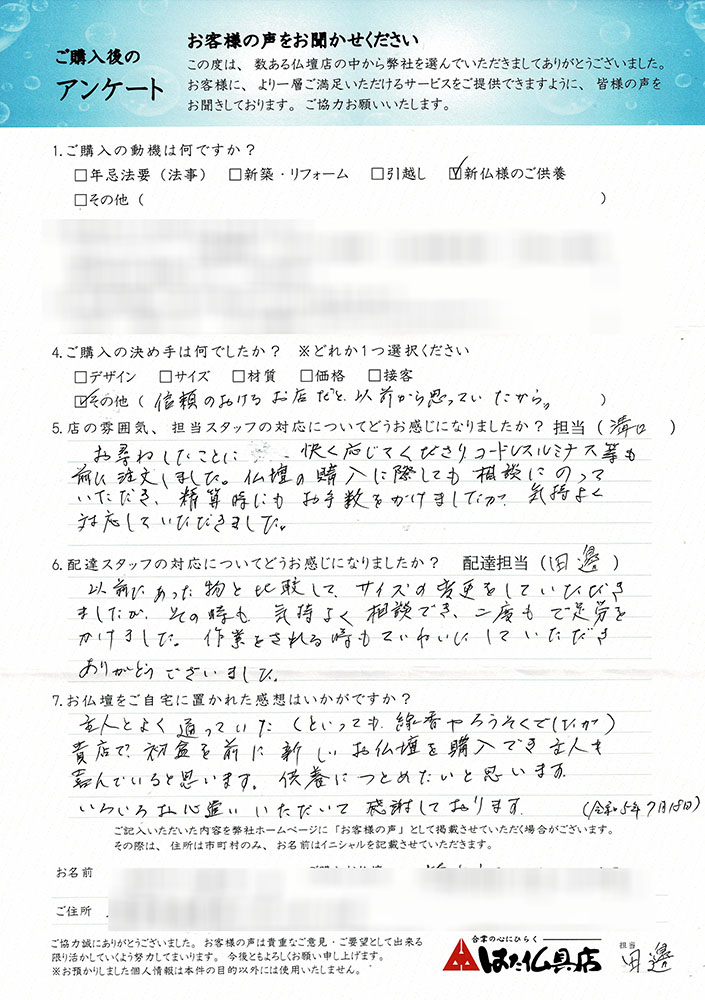 お客様の声をお聞かせください
ご購入後の
アンケート
この度は、数ある仏壇店の中から弊社を選んでいただきましてありがとうございました。
お客様に、より一層ご満足いただけるサービスをご提供できますように、皆様の声を
お聞きしております。ご協力お願いいたします。
1.ご購入の動機は何ですか？
□年忌法要（法事） □新築・リフォーム □引越し ☑新仏様のご供養
□その他（ ）
4.ご購入の決め手は何でしたか？ ※どれか1つ選択ください
□デザイン □サイズ □材質 □価格 □接客
☑その他（信頼のおけるお店だと以前から思っていたから。）
5.店の雰囲気、担当スタッフの対応についてどうお感じになりましたか？担当（溝口 ）
お尋ねしたことに 快く応じてくださりコードレスルミナス等も
前に注文しました。仏壇の購入に際しても相談にのって
いただき、精算時にもお手数をかけましたが、気持よく
対応していただきました。
6.配達スタッフの対応についてどうお感じになりましたか？ 配達担当（田邊 ）
以前にあった物と比較して、サイズの変更をしていただき
ましたが、その時も気持よく相談でき、二度もご足労を
かけました。作業をされる時もていねいにしていただき
ありがとうございました。
7.お仏壇をご自宅に置かれた感想はいかがですか？
主人とよく通っていた（といっても、線香やろうそくでしたが）
貴店で、初盆を前に新しいお仏壇を購入でき主人も
喜んでいると思います。供養につとめたいと思います。
いろいろお心遣いいただいて感謝しております。 （令和5年7月18日）
ご記入いただいた内容を弊社ホームページに「お客様の声」として掲載させていただく場合がございます。
その際は、住所は市町村のみ、お名前はイニシャルを記載させていただきます。
お名前
ご住所
ご協力誠にありがとうございました。お客様の声は貴重なご意見・ご要望として出来る
限り活かしていくよう努力してまいります。今後ともよろしくお願い申し上げます。
※お預かりしました個人情報は本件の目的以外には使用いたしません。
合掌の心にひらく
はた仏具店
担当
田邊